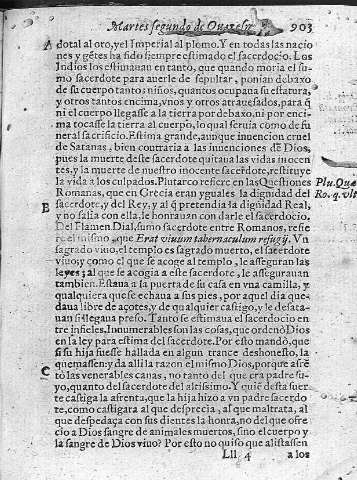 Martes segundo de Quaresm 903
A dotal al oro, y el Imperial al plomo. Y en todas las nacio
nes y gētes ha sido siempre estimado el sacerdocio. Los
Indios los estimauan en tanto, que quando moria el su-
mo sacerdote para auerle de sepultar, ponian debaxo
de su cuerpo tantos niños, quantos ocupaua su estatura,
y otros tantos encima, vnos y otros atrauesados, para q̄
ni el cuerpo llegasse a la tierra por debaxo, ni por en-
cima tocasse la tierra al cuerpo, lo qual seruia como de fu
neral sacrificio. Estima grande, aunque inuencion cruel
de Satanas, bien contraria a las inuenciones de Dios,
pues la muerte deste sacerdote quitaua las vidas inocen
tes, y la muerte de nuestro inocente sacerdote, restituye
la vida a los culpados. Plutarco refiere en las Questiones
Plu. Quæ
Romanas, que en Grecia eran yguales la dignidad del
Ro. q. vlt
B sacerdote, y del Rey, y al q̄ pretendia la dignidad Real,
y no salia con ella, le honrauan con darle el sacerdocio.
Del Flamen Dial, sumo sacerdote entre Romanos, refie
re el mismo, que Erat viuum tabernaculum refugij. Vn
sagrado viuo, el templo es sagrado muerto, el sacerdote
viuo; y como el que se acoge al templo, le asseguran las
leyes; al que se acogia a este sacerdote, le assegurauan
tambien. Estaua a la puerta de su casa en vna camilla, y
qualquiera que se echaua a sus pies, por aquel dia que-
daua libre de açotes, y de qualquier castigo, y le desata-
uan si llegaua preso. Tanto se estimaua el sacerdocio en
tre infieles, Innumerables son las cosas, que ordenò Dios
en la ley para estima del sacerdote. Por esto mandò, que
si su hija fuesse hallada en algun trance deshonesto, la
quemassen; y da alli la razon el mismo Dios, porque afrē
C tò las venerables canas, no tanto del que era padre su-
yo, quanto del sacerdote del altissimo. Y quiē desta suer
te castiga la afrenta, que la hija hizo a vn padre sacerdo
te, como castigara al que desprecia, al que maltrata, al
que despedaça con sus dientes la honra, no del que ofre
cio a Dios sangre de animales muertos, sino el cuerpo y
la sangre de Dios viuo? Por esto no quiso que alistassen
Lll 4 a los